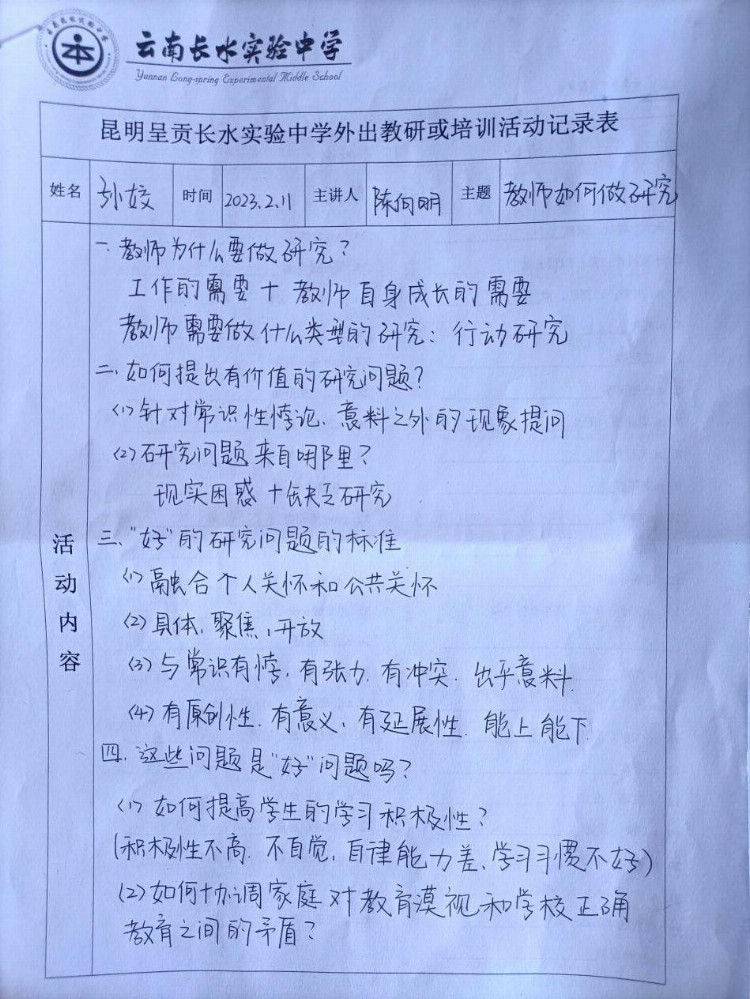 云南长水实验中学
Yunnan Long-spring Experimental Middle School
昆明呈贡长水实验中学外出教研或培训活动记录表
姓名 孙姣 时间 2023.2.11 主讲人 陈向明 主题 教师如何做研究
活动内容
一. 教师为什么要做研究?
工作的需要 + 教师自身成长的需要
教师需要做什么类型的研究: 行动研究
二. 如何提出有价值的研究问题?
(1) 针对常识性悖论、意料之外的现象提问
(2) 研究问题来自哪里?
现实困惑 + 缺乏研究
三、"好"的研究问题的标准
(1) 融合个人关怀和公共关怀
(2) 具体、聚焦、开放
(3) 与常识有悖, 有张力. 有冲突. 出乎意料.
(4) 有原创性. 有意义、有延展性. 能上能下.
四. 这些问题是"好"问题吗?
(1) 如何提高学生的学习积极性?
(积极性不高. 不自觉, 自律能力差、学习习惯不好)
(2) 如何协调家庭对教育漠视和学校正确
教育之间的矛盾?